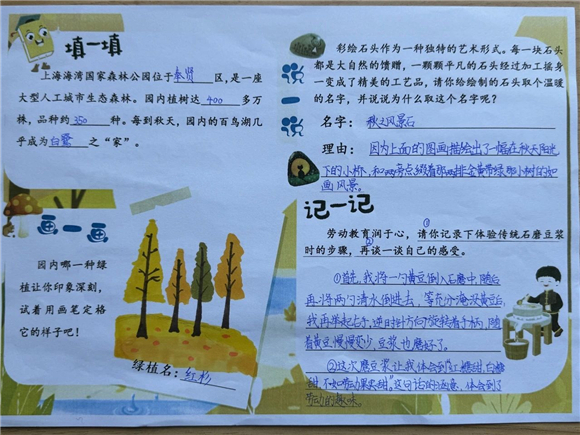 填一填
上海海湾国家森林公园位于奉贤区,是一座
大型人工城市生态森林。园内植树达400多万
株,品种约350种。每到秋天,园内的百鸟湖几
乎成为白鹭之“家”。
画一画
园内哪一种绿
植让你印象深刻,
试着用画笔定格
它的样子吧!
绿植名:红杉
说一说
彩绘石头作为一种独特的艺术形式。每一块石
头都是大自然的馈赠,一颗颗平凡的石头经过加工摇身
一变成了精美的工艺品,请你给绘制的石头取个温暖
的名字,并说说为什么取这个名字呢?
名字:秋之风景石
理由:因为上面的图画描绘出了一幅在秋天阳光
下的小桥,和两旁点缀着那两排金黄带绿那小树的如
画风景。
记一记
劳动教育润于心,请你记录下体验传统石磨豆浆
时的步骤,再谈一谈自己的感受。
①首先,我将一勺黄豆倒入石磨中,随后
再将两勺清水倒进去,等充分淹没黄豆后,
我再单起右手,逆时针方向旋转着手柄,随
着黄豆慢慢变少,豆浆也磨好了。
②这次磨豆浆让我体会到“红糖甜,白糖
甜,不如劳动果实甜。”这句话的涵意,体会到了
劳动的趣味。